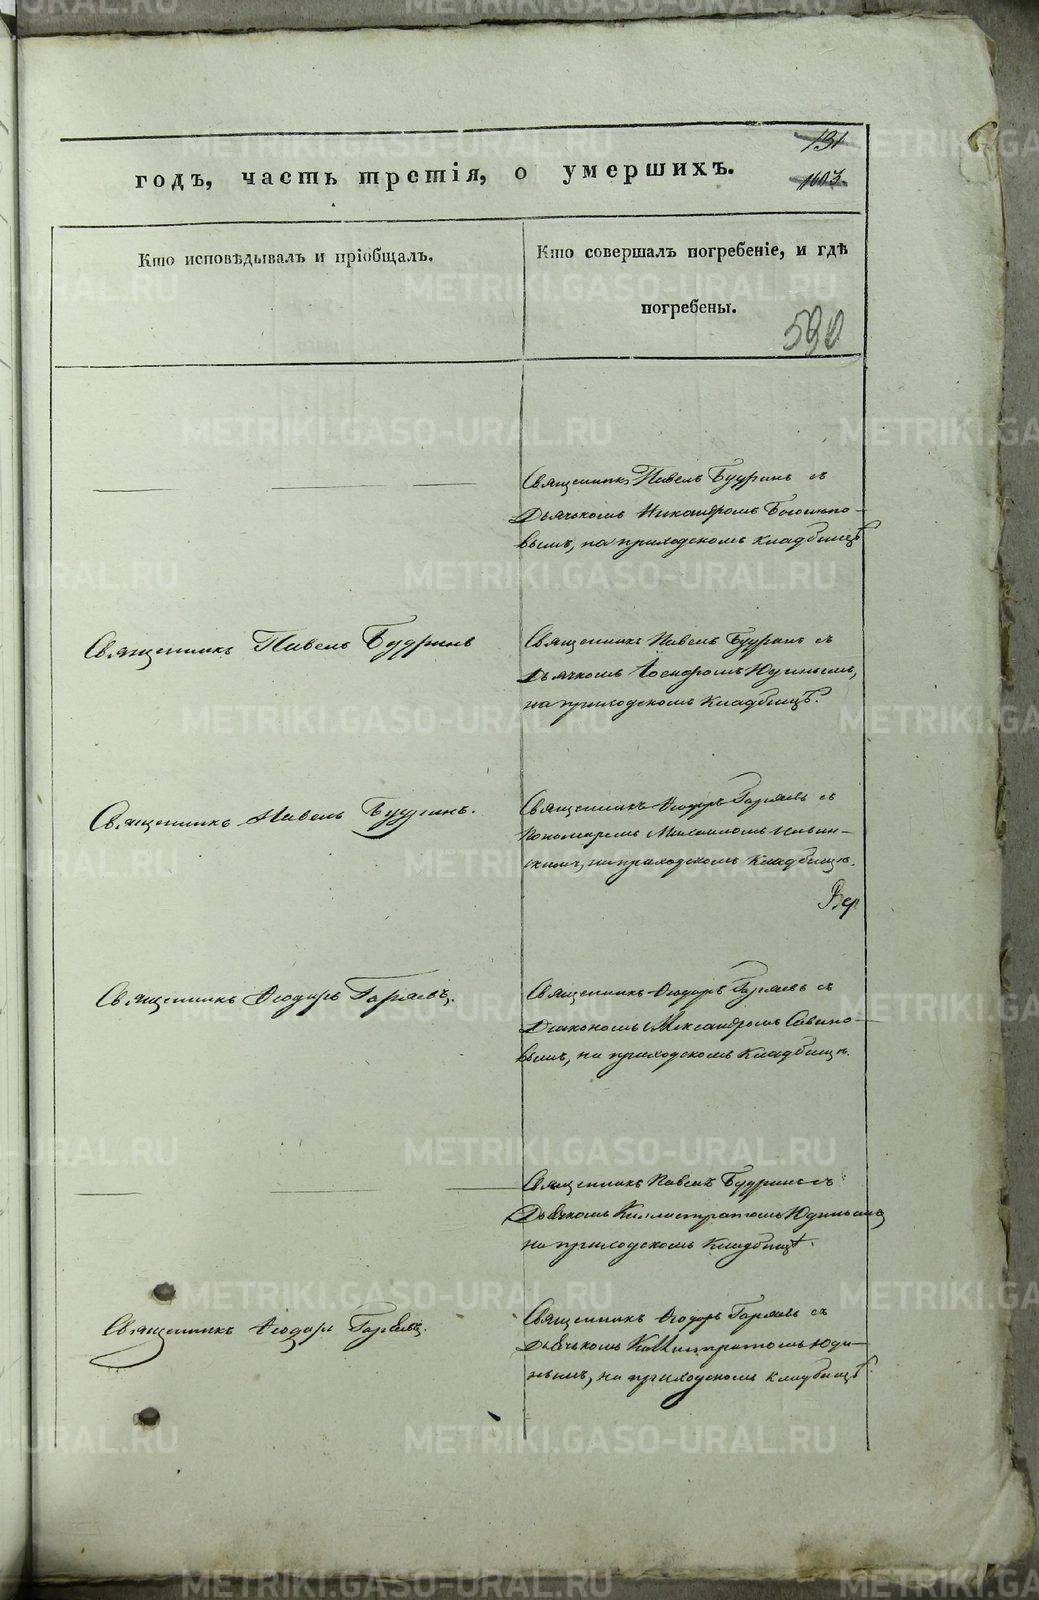 131
годъ, часть третія, о умершихъ.
1603
Кто исповѣдывалъ и пріобщалъ.
Кто совершалъ погребеніе, и гдѣ
погребены.
590
Священникъ Павелъ Будринъ съ
Дьячькомъ Никандромъ
вымъ, на приходскомъ кладбищѣ
Священникъ Павелъ Будринъ
Священникъ Павелъ Будринъ съ
Дьячкомъ Юдинымъ,
на приходскомъ кладбищѣ.
Священникъ Павелъ Будринъ.
Священникъ Ѳеодоръ Гаряевъ съ
Пономаремъ Михаиломъ
скимъ, на приходскомъ кладбищѣ.
Священникъ Ѳеодоръ Гаряевъ.
Священникъ Ѳеодоръ Гаряевъ съ
Діакономъ Александромъ Савино-
вымъ, на приходскомъ кладбищѣ.
Священникъ Павелъ Будринъ съ
Дьячкомъ Каллистратомъ Юдинымъ
на приходскомъ кладбищѣ.
Священникъ Ѳеодоръ Гаряевъ.
Священникъ Ѳеодоръ Гаряевъ съ
Дьячькомъ Каллистратомъ Юди-
нымъ, на приходскомъ кладбищѣ
METRIKI.GASO-URAL.RU